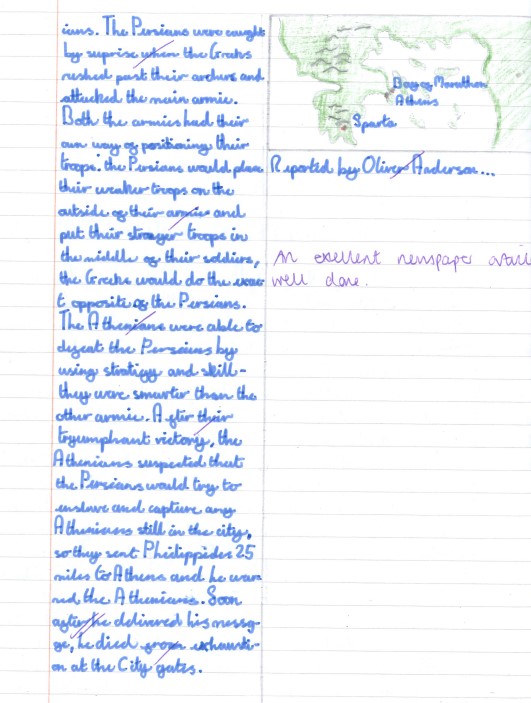 ians. The Persians were caught
by suprise when the Greeks
rushed past their archers and
attacked the main armie.
Both the armies had their
own way of positioning their
troops: the Persians would place
their weaker troops on the
outside of their armie and
put their stronger troops in
the middle of their soldiers,
the Greeks would do the exac
t opposite of the Persians.
The Athenians were able to
defeat the Persians by
using stratigy and skill-
they were smarter than the
other armie. After their
tryumphant victory, the
Athenians suspected that
the Persians would try to
enslave and capture any
Athenians still in the city,
so they sent Pheidippides 25
miles to Athens and he war
ned the Athenians. Soon
after he delivered his messa-
ge, he died from exhausti-
on at the City gates.
Bay of Marathon
Athens
Sparta
Reported by Oliver Anderson...
An exellent newspaper
well done.